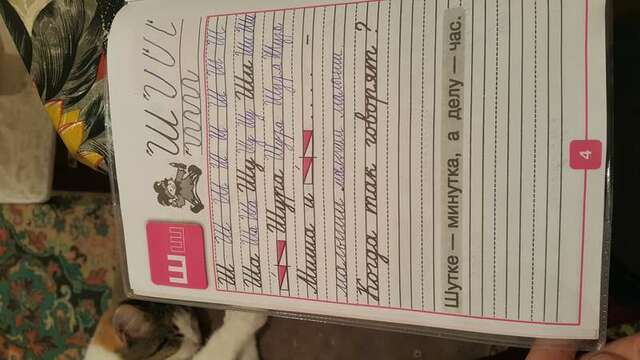 Ш ш
Ш
ш ш ш
Ш Ш Ш Ш Ш Ш Ш Ш
Ша Ша Ша Шу Шу Шу Ши Ши Ши
Шура Шура Шура Шура
Миша и . . . . . –
малыши малыши малыши
Когда так говорят?
Шутке — минутка, а делу — час.
4